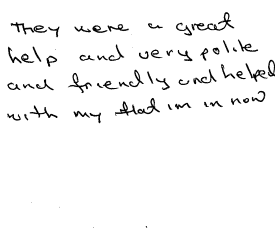 They were a great
help and very polite
and friendly and helped
with my flat im in now